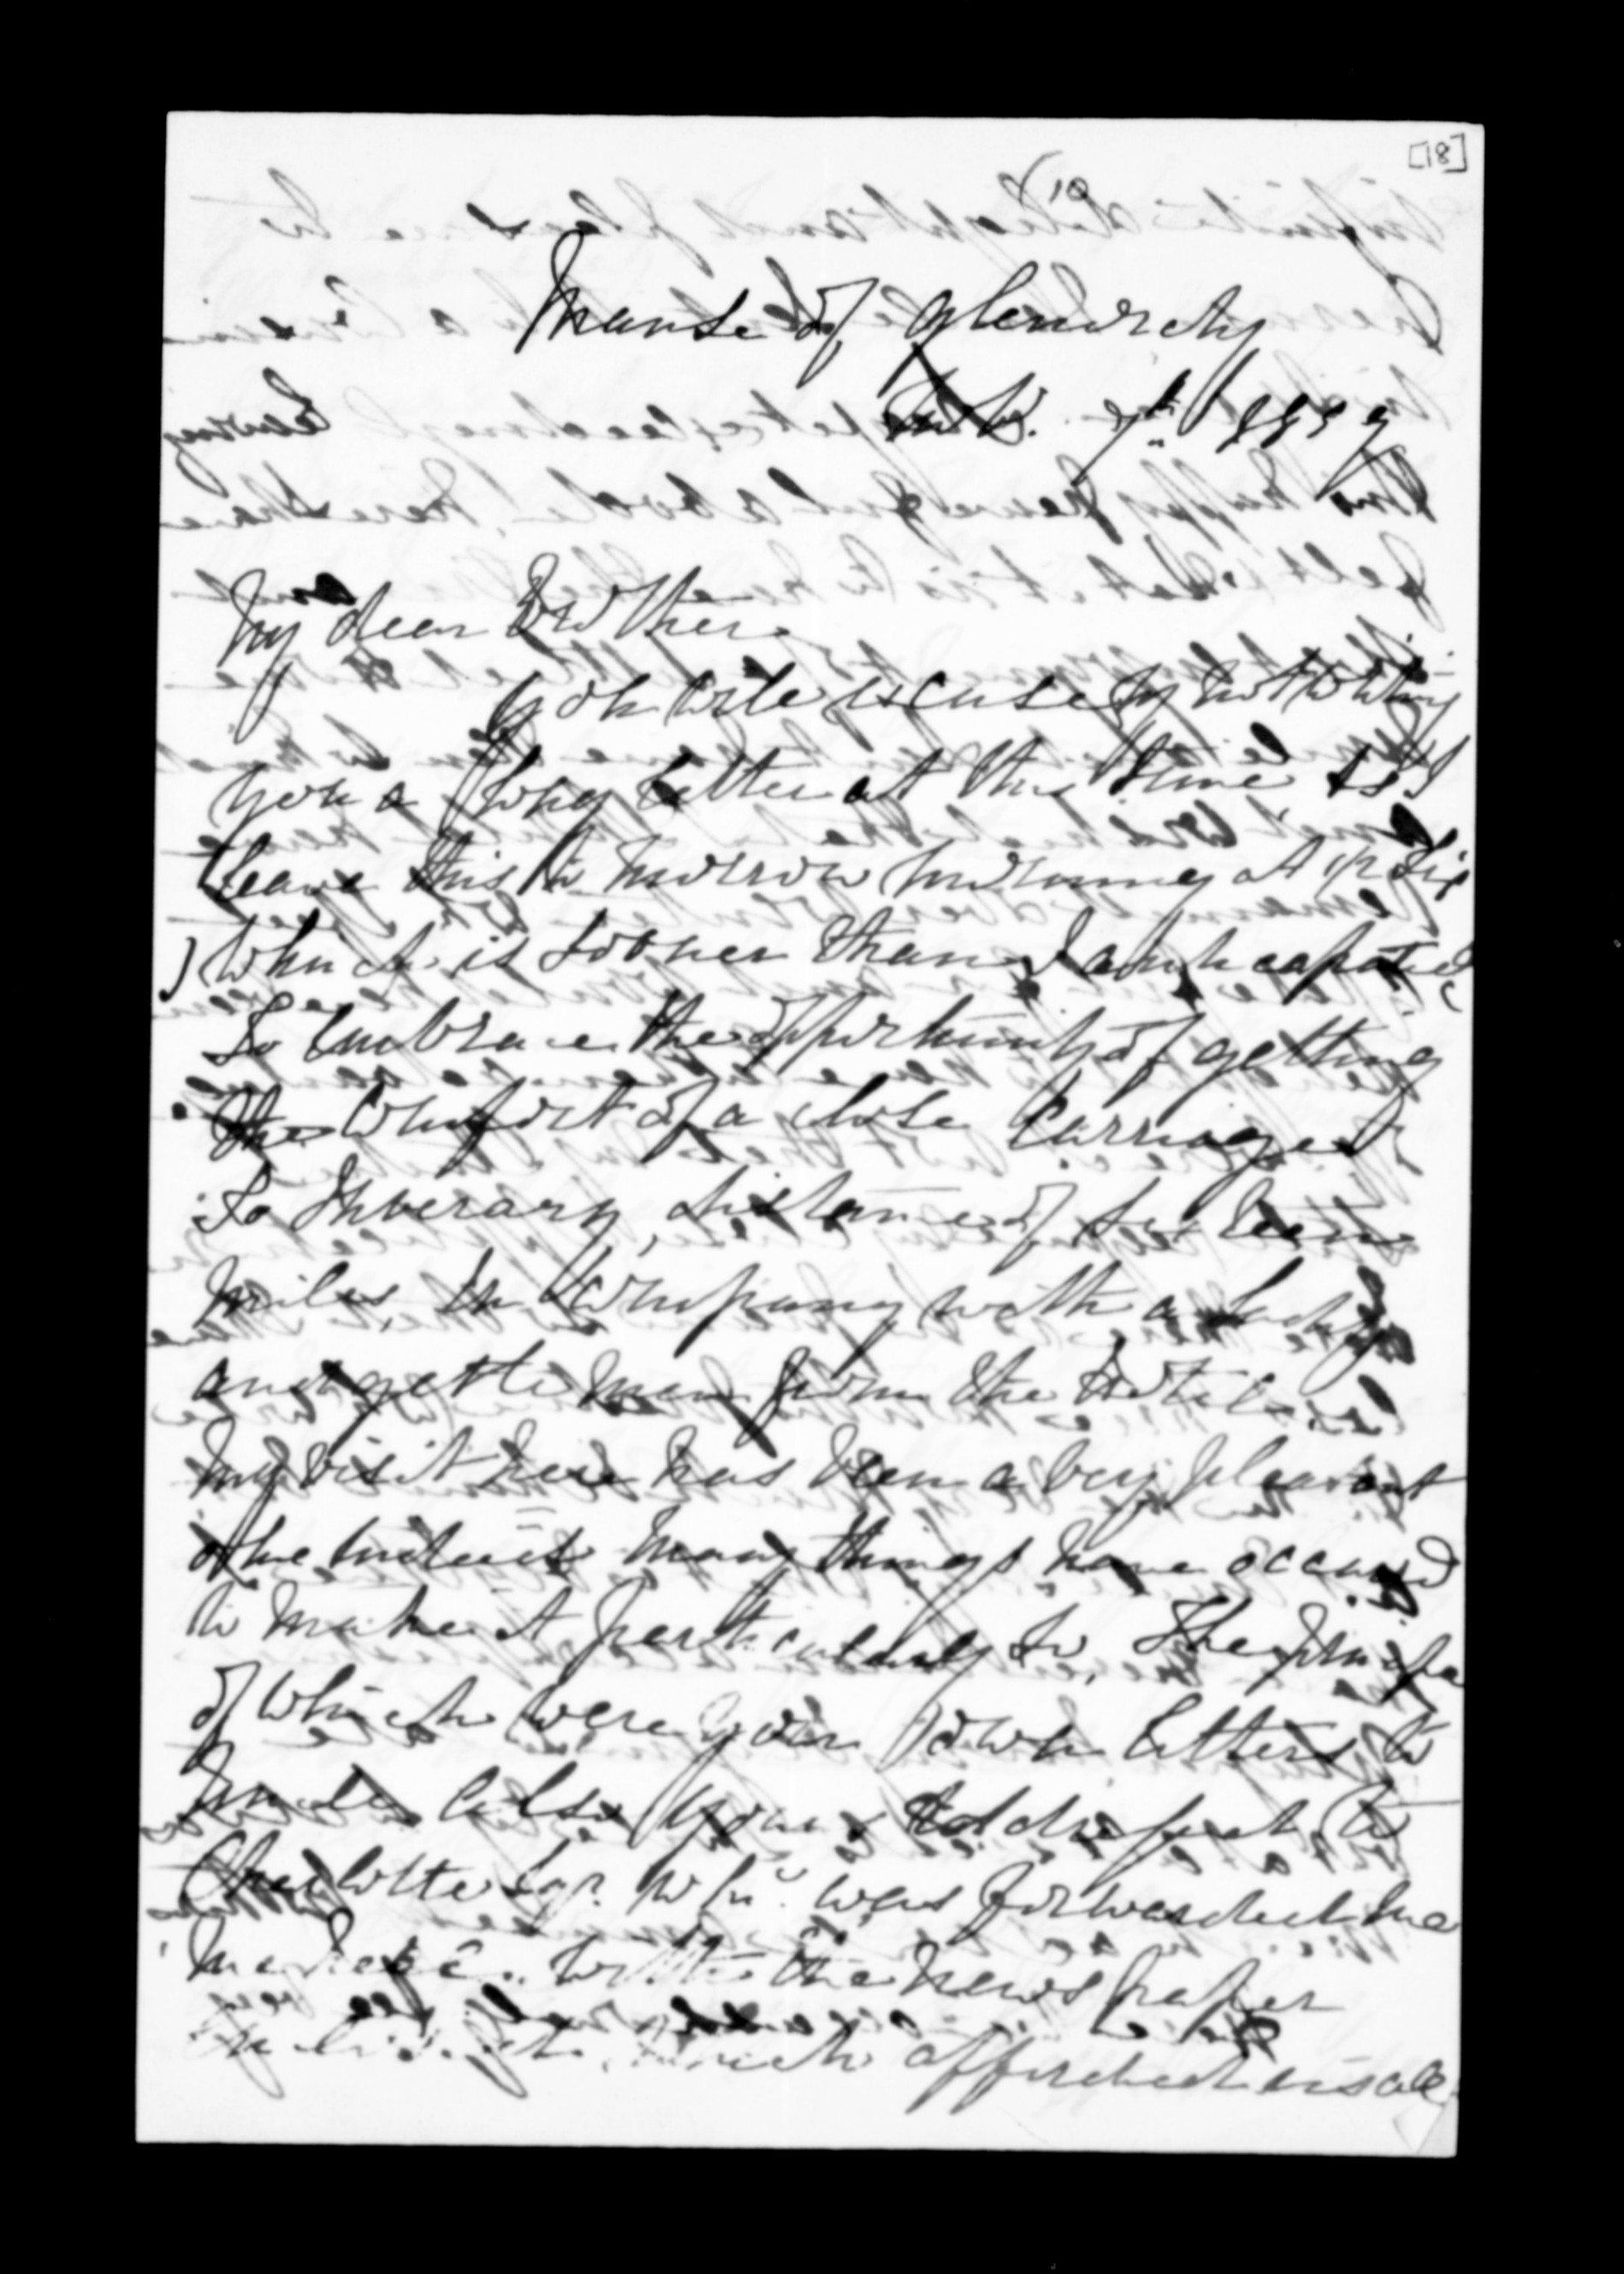 [18]
Manse of Glenorchy
7th 1859
My dear Brother
You will excuse my not writing
you a long letter at this time as I
leave this to morrow morning at six
which is sooner than I anticipated
to embrace the opportunity of getting
the comfort of a close Carriage
to Inverary, distance of sixteen
miles in company with a Lady
and gentleman from the Hotel
My visit here has been a very pleasant
one indeed many things have occurred
to make it particularly so, The principal
of which were your own letters to
also yours addressed to
Charlotte Sqr. wh. was forwarded me
with the news paper
which afforded us all